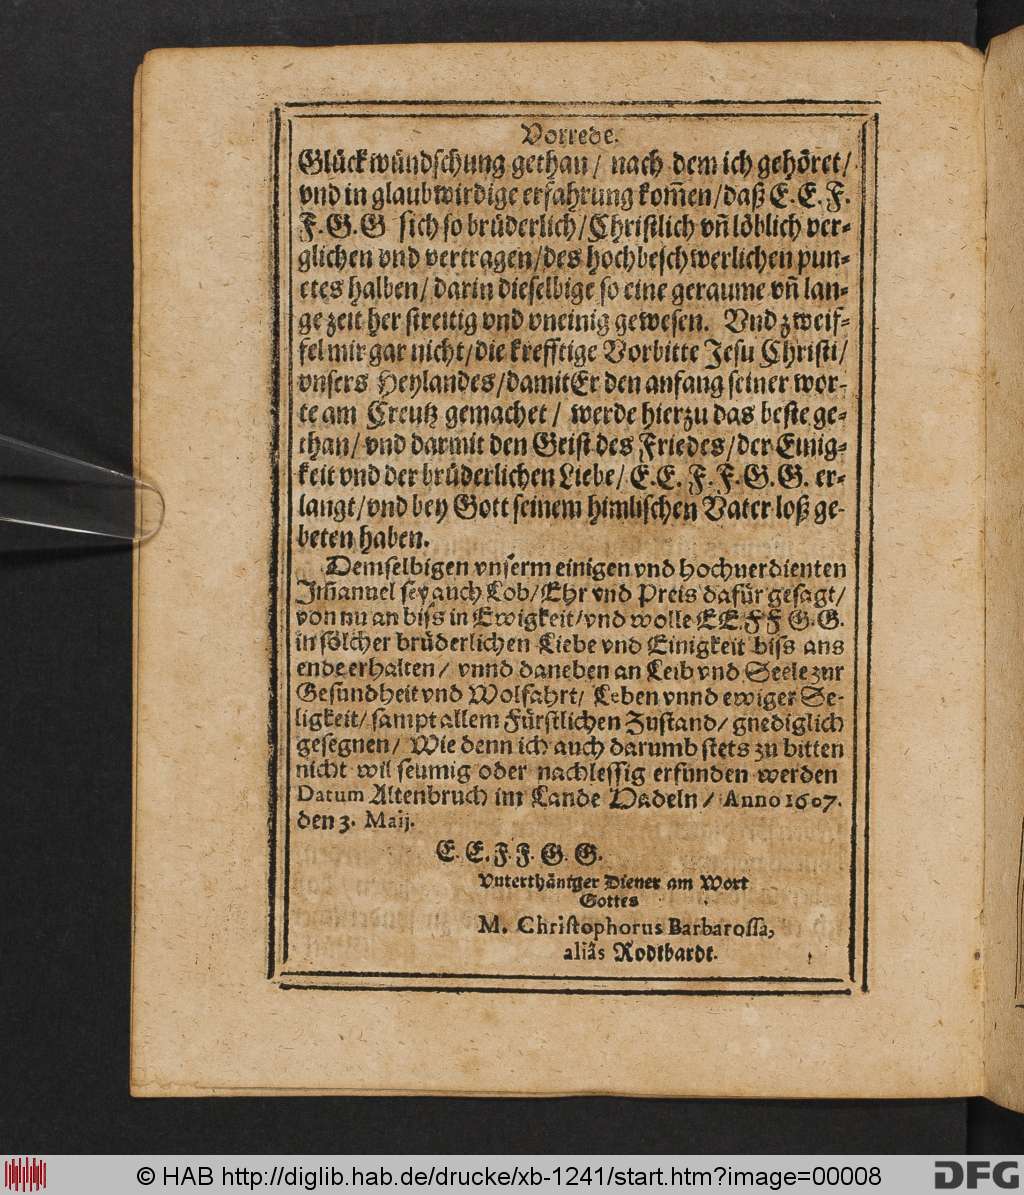 Vorrede.
Glückwündschung gethan / nach dem ich gehöret /
vnd in glaubwirdige erfahrung kom̃en / daß E. E. F.
F. G. G sich so brüderlich / Christlich vñ löblich ver-
glichen vnd vertragen / des hochbeschwerlichen pun-
ctes halben / darin dieselbige so eine geraume vñ lan-
ge zeit her streitig vnd vneinig gewesen. Vnd zweif-
fel mir gar nicht / die krefftige Vorbitte Jesu Christi /
vnsers Heylandes / damit Er den anfang seiner wor-
te am Creutz gemachet / werde hierzu das beste ge-
than / vnd darmit den Geist des Friedes / der Einig-
keit vnd der brüderlichen Liebe / E. E. F. F. G. G. er-
langt / vnd bey Gott seinem himlischen Vater loß ge-
beten haben.
Demselbigen vnserm einigen vnd hochuerdienten
Im̃anuel sey auch Lob / Ehr vnd Preis dafür gesagt /
von nu an biss in Ewigkeit / vnd wolle E E F F G. G.
in solcher brüderlichen Liebe vnd Einigkeit biss ans
ende erhalten / vnnd daneben an Leib vnd Seele zur
Gesundheit vnd Wolfahrt / Leben vnnd ewiger Se-
ligkeit / sampt allem Fürstlichen Zustand / gnediglich
gesegnen / Wie denn ich auch darumb stets zu bitten
nicht wil seumig oder nachlessig erfunden werden
Datum Altenbruch im Lande Hadeln / Anno 1607.
den 3. Maij.
E. E. F. F. G. G.
Vnterthäniger Diener am Wort
Gottes
M. Christophorus Barbarossa,
aliâs Rodtbardt.
© HAB http://diglib.hab.de/drucke/xb-1241/start.htm?image=00008
DFG